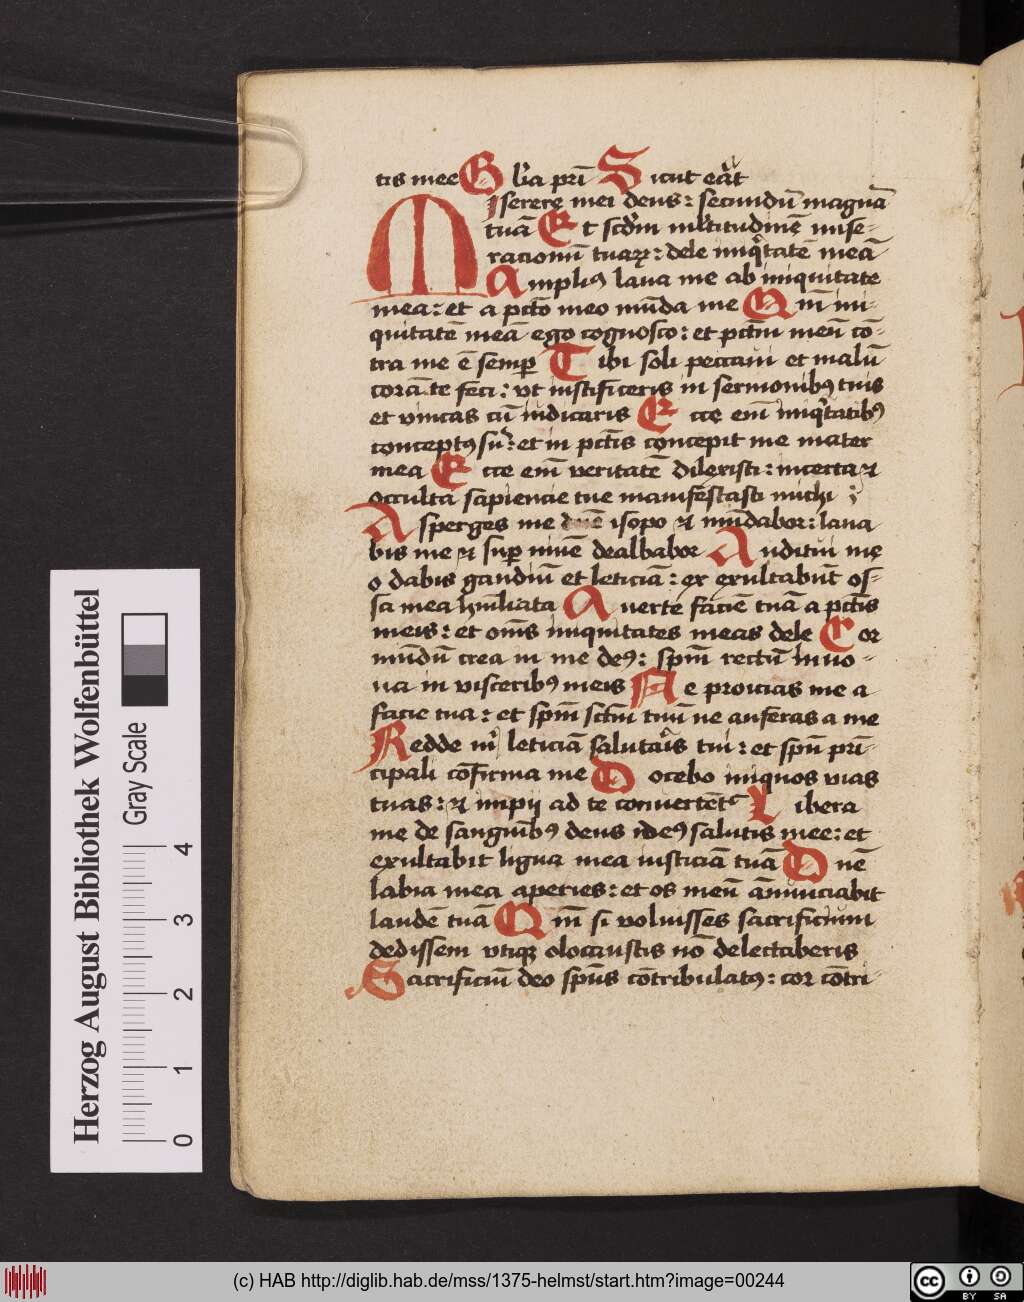 tis mee Glīa prī Sicut erāt
Miserere mei deus: secundū magnā
tuā Et scd̄m ml̄titudinē mise-
racionū tuaꝝ: dele iniq̄tatē meā
Ampliꝰ laua me ab iniquitate
mea: et a pctō meo mūda me Qm̄ ini-
quitatē meā ego cognosco: et pctm̄ meū cō-
tra me ē semꝑ Tibi soli peccaui et malū
corā te feci: vt iustificeris in sermonibꝰ tuis
et vincas cū iudicaris Ecce em̄ iniq̄tatibꝰ
conceptꝰ sū: et in pctīs concepit me mater
mea Ecce em̄ veritatē dilexisti: incerta ⁊
occulta sapiencie tue manifestasti michi
Asperges me isopo ⁊ mūdabor: laua
bis me ⁊ suꝑ niuē dealbabor Auditui me
o dabis gaudiū et leticiā: et exultabūt os-
sa mea hūiliata Auerte faciē tuā a pctīs
meis: et om̄s iniquitates meas dele Cor
mūdū crea in me deꝰ: spm̄ rectū inno-
ua in visceribꝰ meis Ne proicias me a
facie tua: et spm̄ sctm̄ tuū ne auferas a me
Redde m̄ leticiā salutaīs tui: et spū prī-
cipali cōfirma me Docebo iniquos vias
tuas: ⁊ impij ad te conuertēt Libera
me de sanguībꝰ deus deꝰ salutis mee: et
exultabit ligua mea iusticiā tuā Dnē
labia mea aperies: et os meū ānunciabit
laudē tuā Qm̄ si voluisses sacrificium
dedissem vtiqꝫ olocaustis nō delectaberis
Sacrificiū deo spūs cōtribulatꝰ: cor cōtri-
Herzog August Bibliothek Wolfenbüttel
Gray Scale
0 1 2 3 4
(c) HAB http://diglib.hab.de/mss/1375-helmst/start.htm?image=00244
cc BY SA